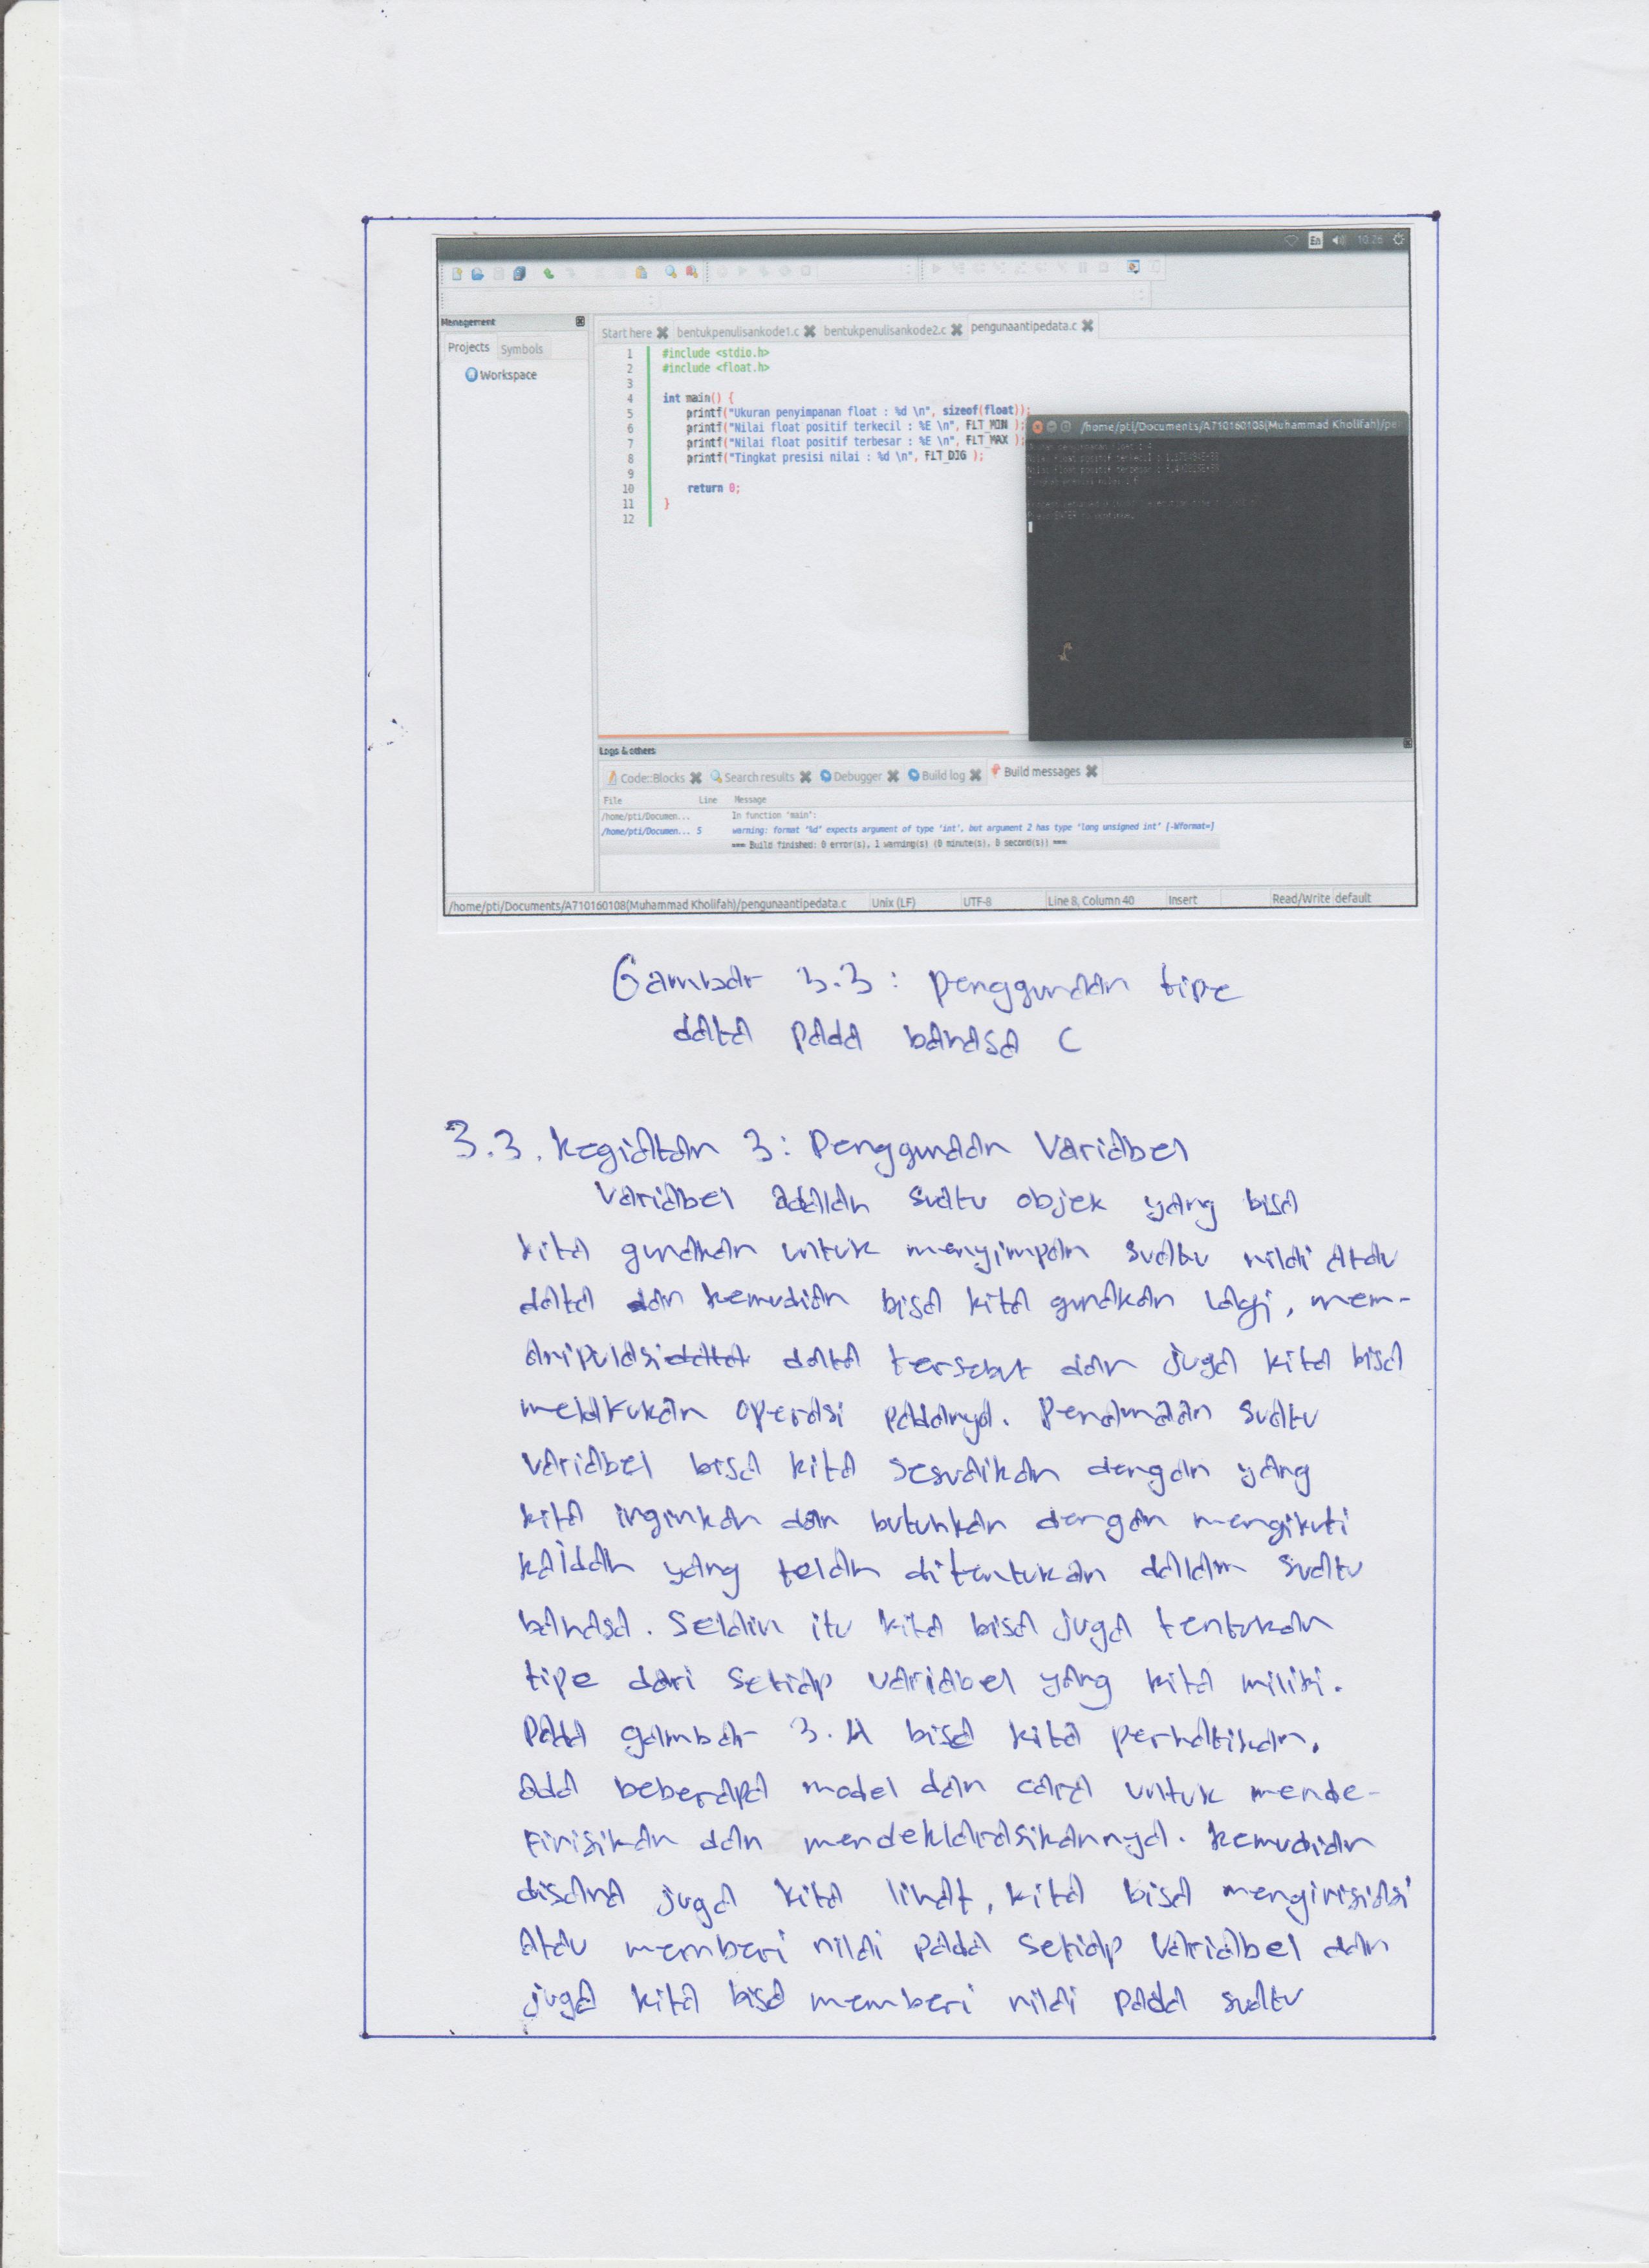 En 10:26
Management
Projects Symbols
Workspace
Start here bentukpenulisankode1.c bentukpenulisankode2.c pengunaantipedata.c
1 #include <stdio.h>
2 #include <float.h>
3
4 int main() {
5 printf("Ukuran penyimpanan float : %d \n", sizeof(float));
6 printf("Nilai float positif terkecil : %E \n", FLT_MIN );
7 printf("Nilai float positif terbesar : %E \n", FLT_MAX );
8 printf("Tingkat presisi nilai : %d \n", FLT_DIG );
9
10 return 0;
11 }
12
/home/pti/Documents/A710160108(Muhammad Kholifah)/pe
Tingkat presisi nilai : 6
Press ENTER to continue.
Logs & others
Code::Blocks Search results Debugger Build log Build messages
File Line Message
/home/pti/Documen... In function 'main':
/home/pti/Documen... 5 warning: format '%d' expects argument of type 'int', but argument 2 has type 'long unsigned int' [-Wformat=]
=== Build finished: 0 error(s), 1 warning(s) (0 minute(s), 0 second(s)) ===
/home/pti/Documents/A710160108(Muhammad Kholifah)/pengunaantipedata.c Unix (LF) UTF-8 Line 8, Column 40 Insert Read/Write default
Gambar 3.3 : penggunaan tipe
data pada bahasa C
3.3. Kegiatan 3 : Penggunaan Variabel
Variabel adalah suatu objek yang bisa
kita gunakan untuk menyimpan suatu nilai atau
data dan kemudian bisa kita gunakan lagi, mem-
anipulasi data tersebut dan juga kita bisa
melakukan operasi padanya. Penamaan suatu
variabel bisa kita sesuaikan dengan yang
kita inginkan dan butuhkan dengan mengikuti
kaidah yang telah ditentukan dalam suatu
bahasa. Selain itu kita bisa juga tentukan
tipe dari setiap variabel yang kita miliki.
Pada gambar 3.4 bisa kita perhatikan.
ada beberapa model dan cara untuk mende-
finisikan dan mendeklarasikannya. Kemudian
disana juga kita lihat, kita bisa menginisiasi
atau memberi nilai pada setiap variabel dan
juga kita bisa memberi nilai pada suatu